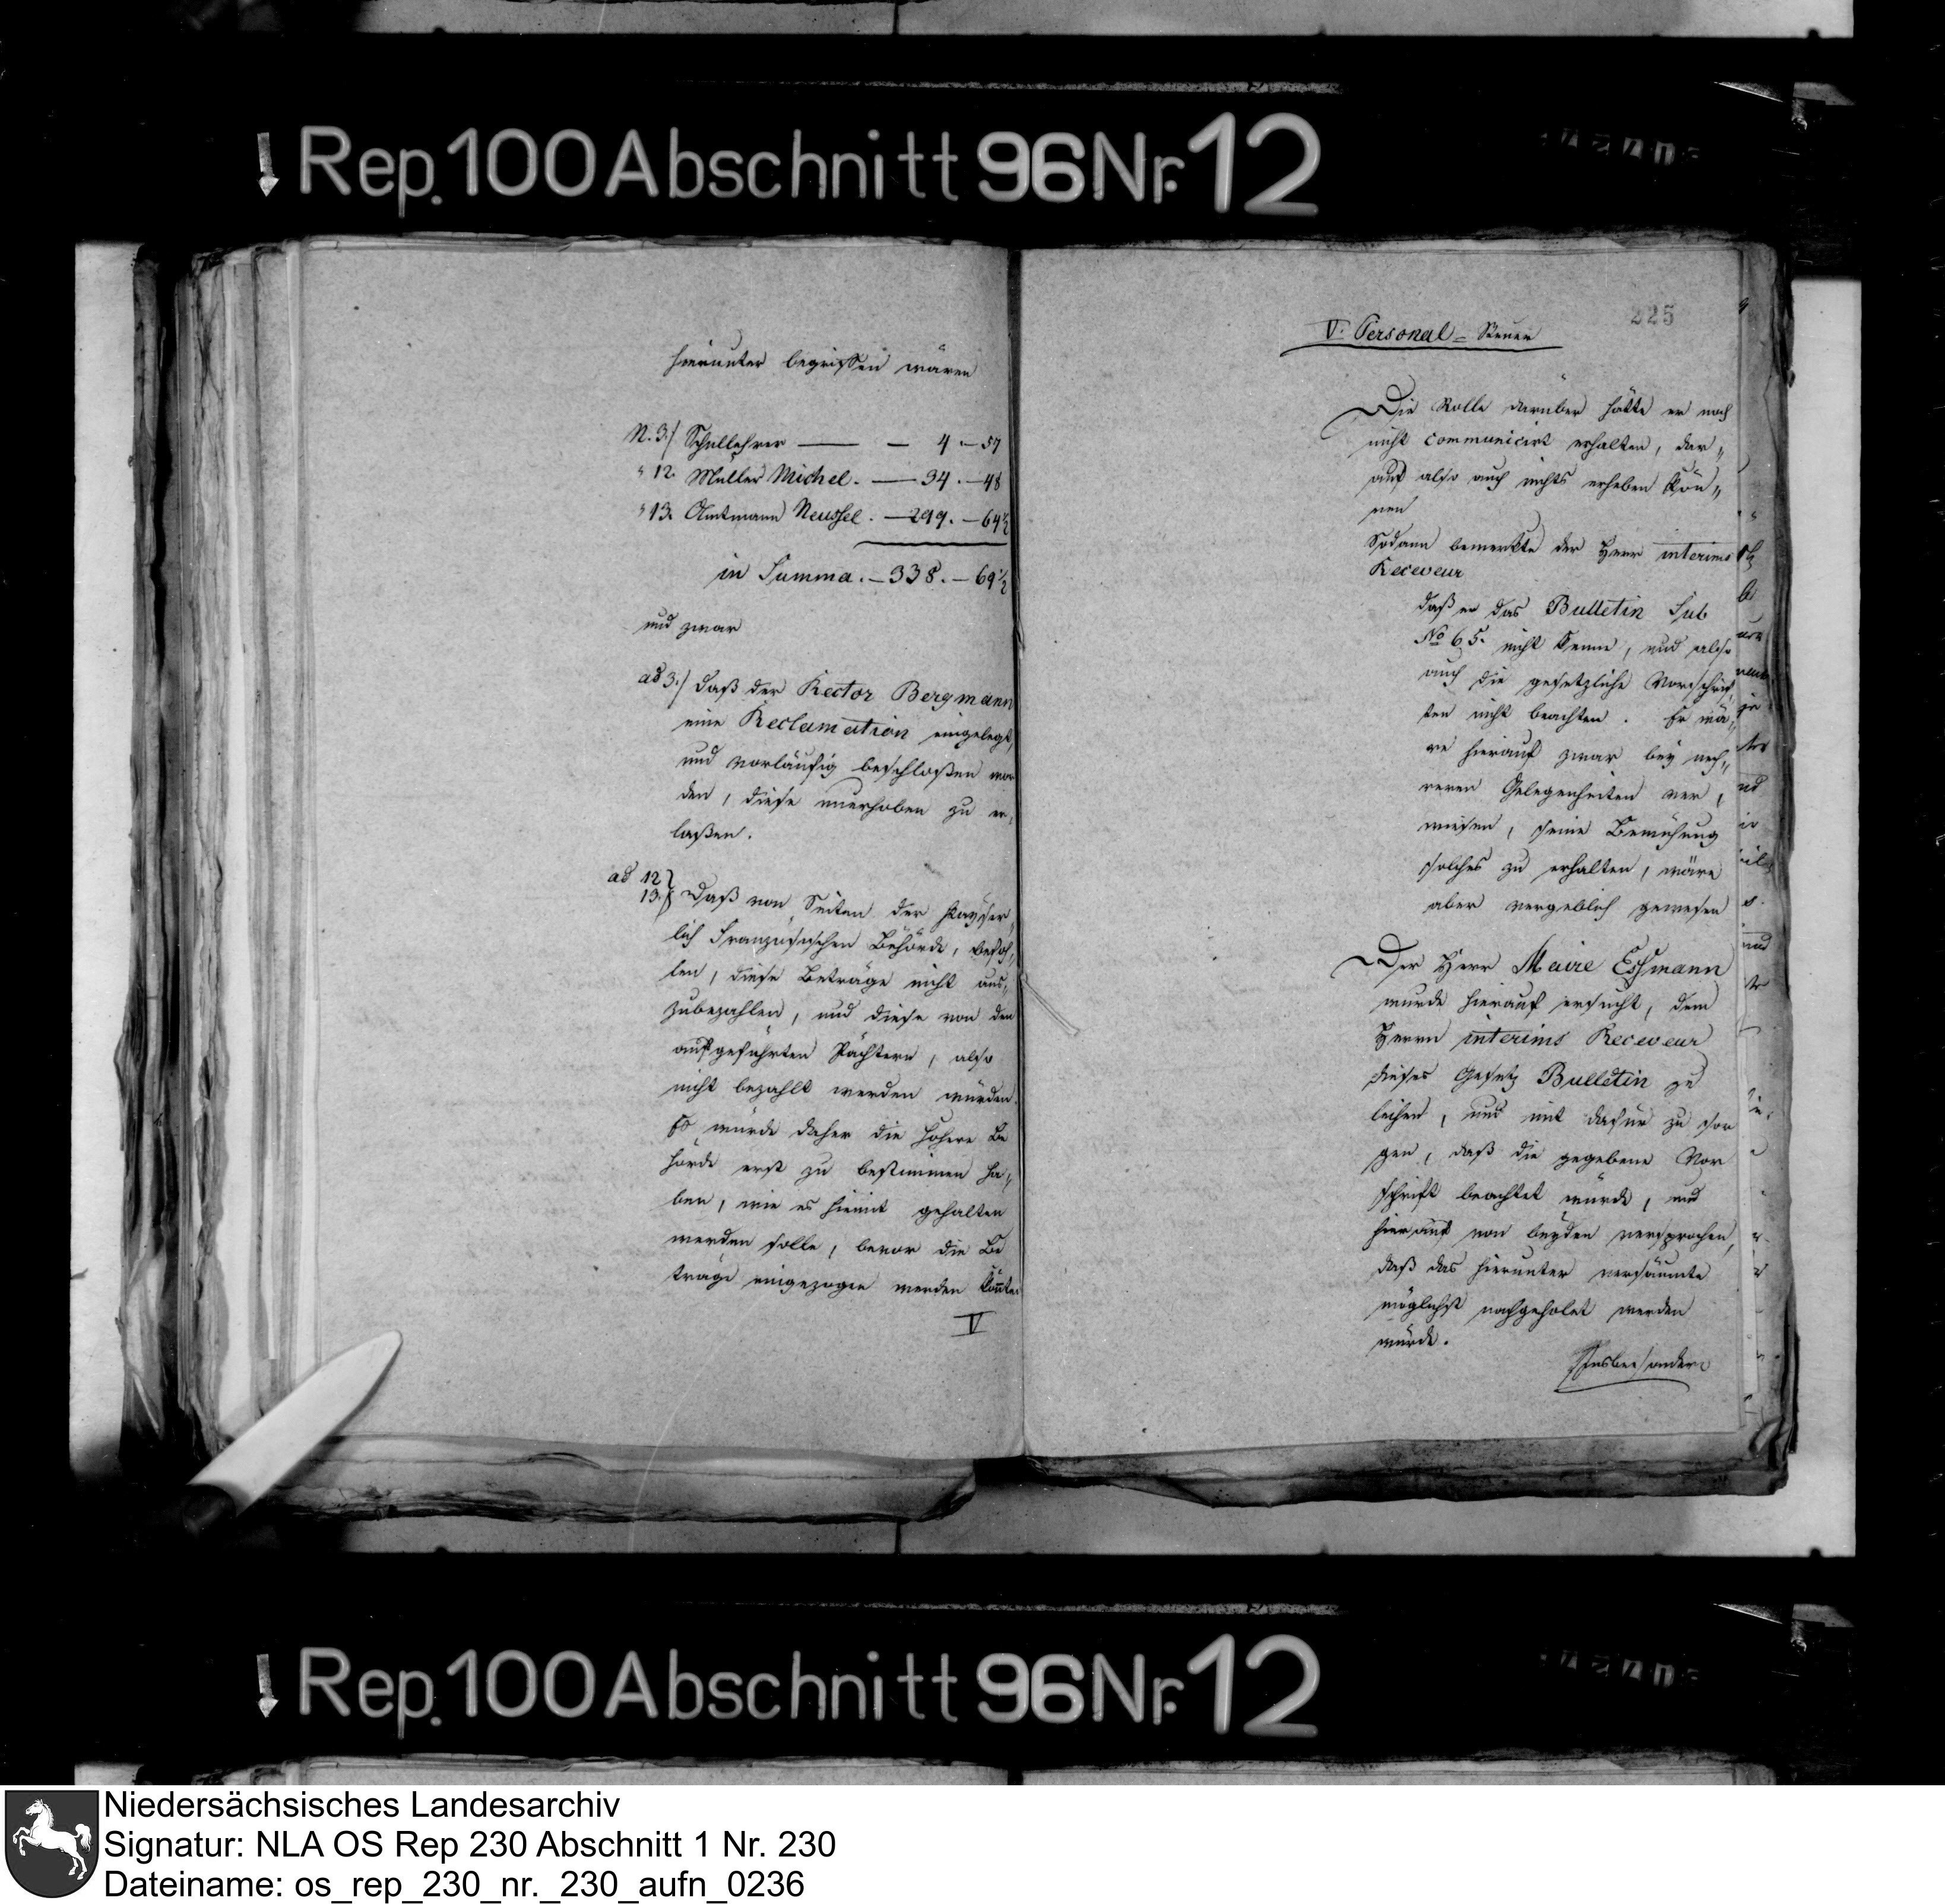 Rep. 100 Abschnitt 96 Nr. 12
hierunter begriffen wären
N. 3./ Schullehrer — — 4 — 57
" 12. Müller Michel. — 34. — 48
" 13. Amtmann Neussel. — 299. — 64½
in Summa. — 338. — 69½
und zwar
ad 3./ daß der Rector Bergmann
eine Reclamation eingelegt,
und vorläufig beschloßen wor
den, diese unerhoben zu er„
laßen.
ad 12
13. Daß von Seiten der Kayser„
lich Französischen Behörde, befoh„
len, diese Beträge nicht aus„
zubezahlen, und diese von den
aufgeführten Pächtern, also
nicht bezahlt werden würden.
Es würde daher die höhere Be
hörde erst zu bestimmen ha„
ben, wie es hiemit gehalten
werden solle, bevor die Be
träge eingezogen werden könten
V
225
V. Personal-Steuer
Die Rolle darüber hätte er noch
nicht communicirt erhalten, dar„
auf also auch nichts erheben kön„
nen
Sodann bemerkte der Herr interims
Receveur
daß er das Bulletin Sub
No 65. nicht kenne, und also
auch die gesetzliche Vorschrif„
ten nicht beachten. Er wä„
re hierauf zwar bey meh„
reren Gelegenheiten ver„
wiesen, seine Bemühung
solches zu erhalten, wäre
aber vergeblich gewesen
Der Herr Maire Essmann
wurde hierauf ersucht, dem
Herrn interims Receveur
dieses Gesetz Bulletin zu
leihen, und mit dafür zu sor
gen, daß die gegebene Vor
schrift beachtet würde, und
hierauf von beyden versprochen,
daß das hierunter versäumte
möglichst nachgeholet werden
würde.
Insbesondere
Rep. 100 Abschnitt 96 Nr. 12
Niedersächsisches Landesarchiv
Signatur: NLA OS Rep 230 Abschnitt 1 Nr. 230
Dateiname: os_rep_230_nr._230_aufn_0236